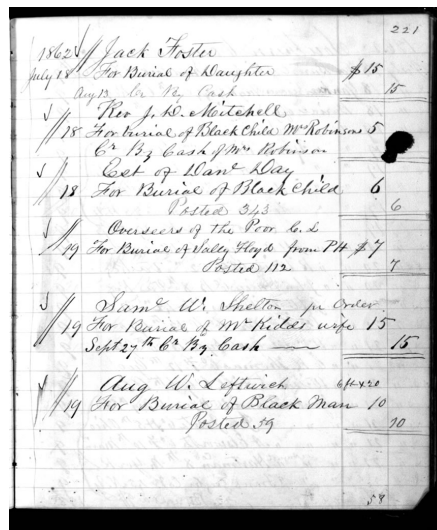 221
1862 Jack Foster
July 18 For Burial of Daughter $15
Aug 13 Cr By Cash 15
Rev J. D. Mitchell
18 For burial of Black Child Mrs Robinsons 5
Cr By Cash of Mrs Robinson
Est of Danl Day
18 For Burial of Black Child 6
Posted 343 6
Overseers of the Poor C. L
19 For Burial of Sally Floyd from PH $ 7
Posted 112 7
Saml W. Shelton pr Order
19 For Burial of Mr Kidds wife 15
Sept 27th Cr By Cash 15
Aug W. Leftwich 6 ft x 20
19 For Burial of Black Man 10
Posted 59 10
58